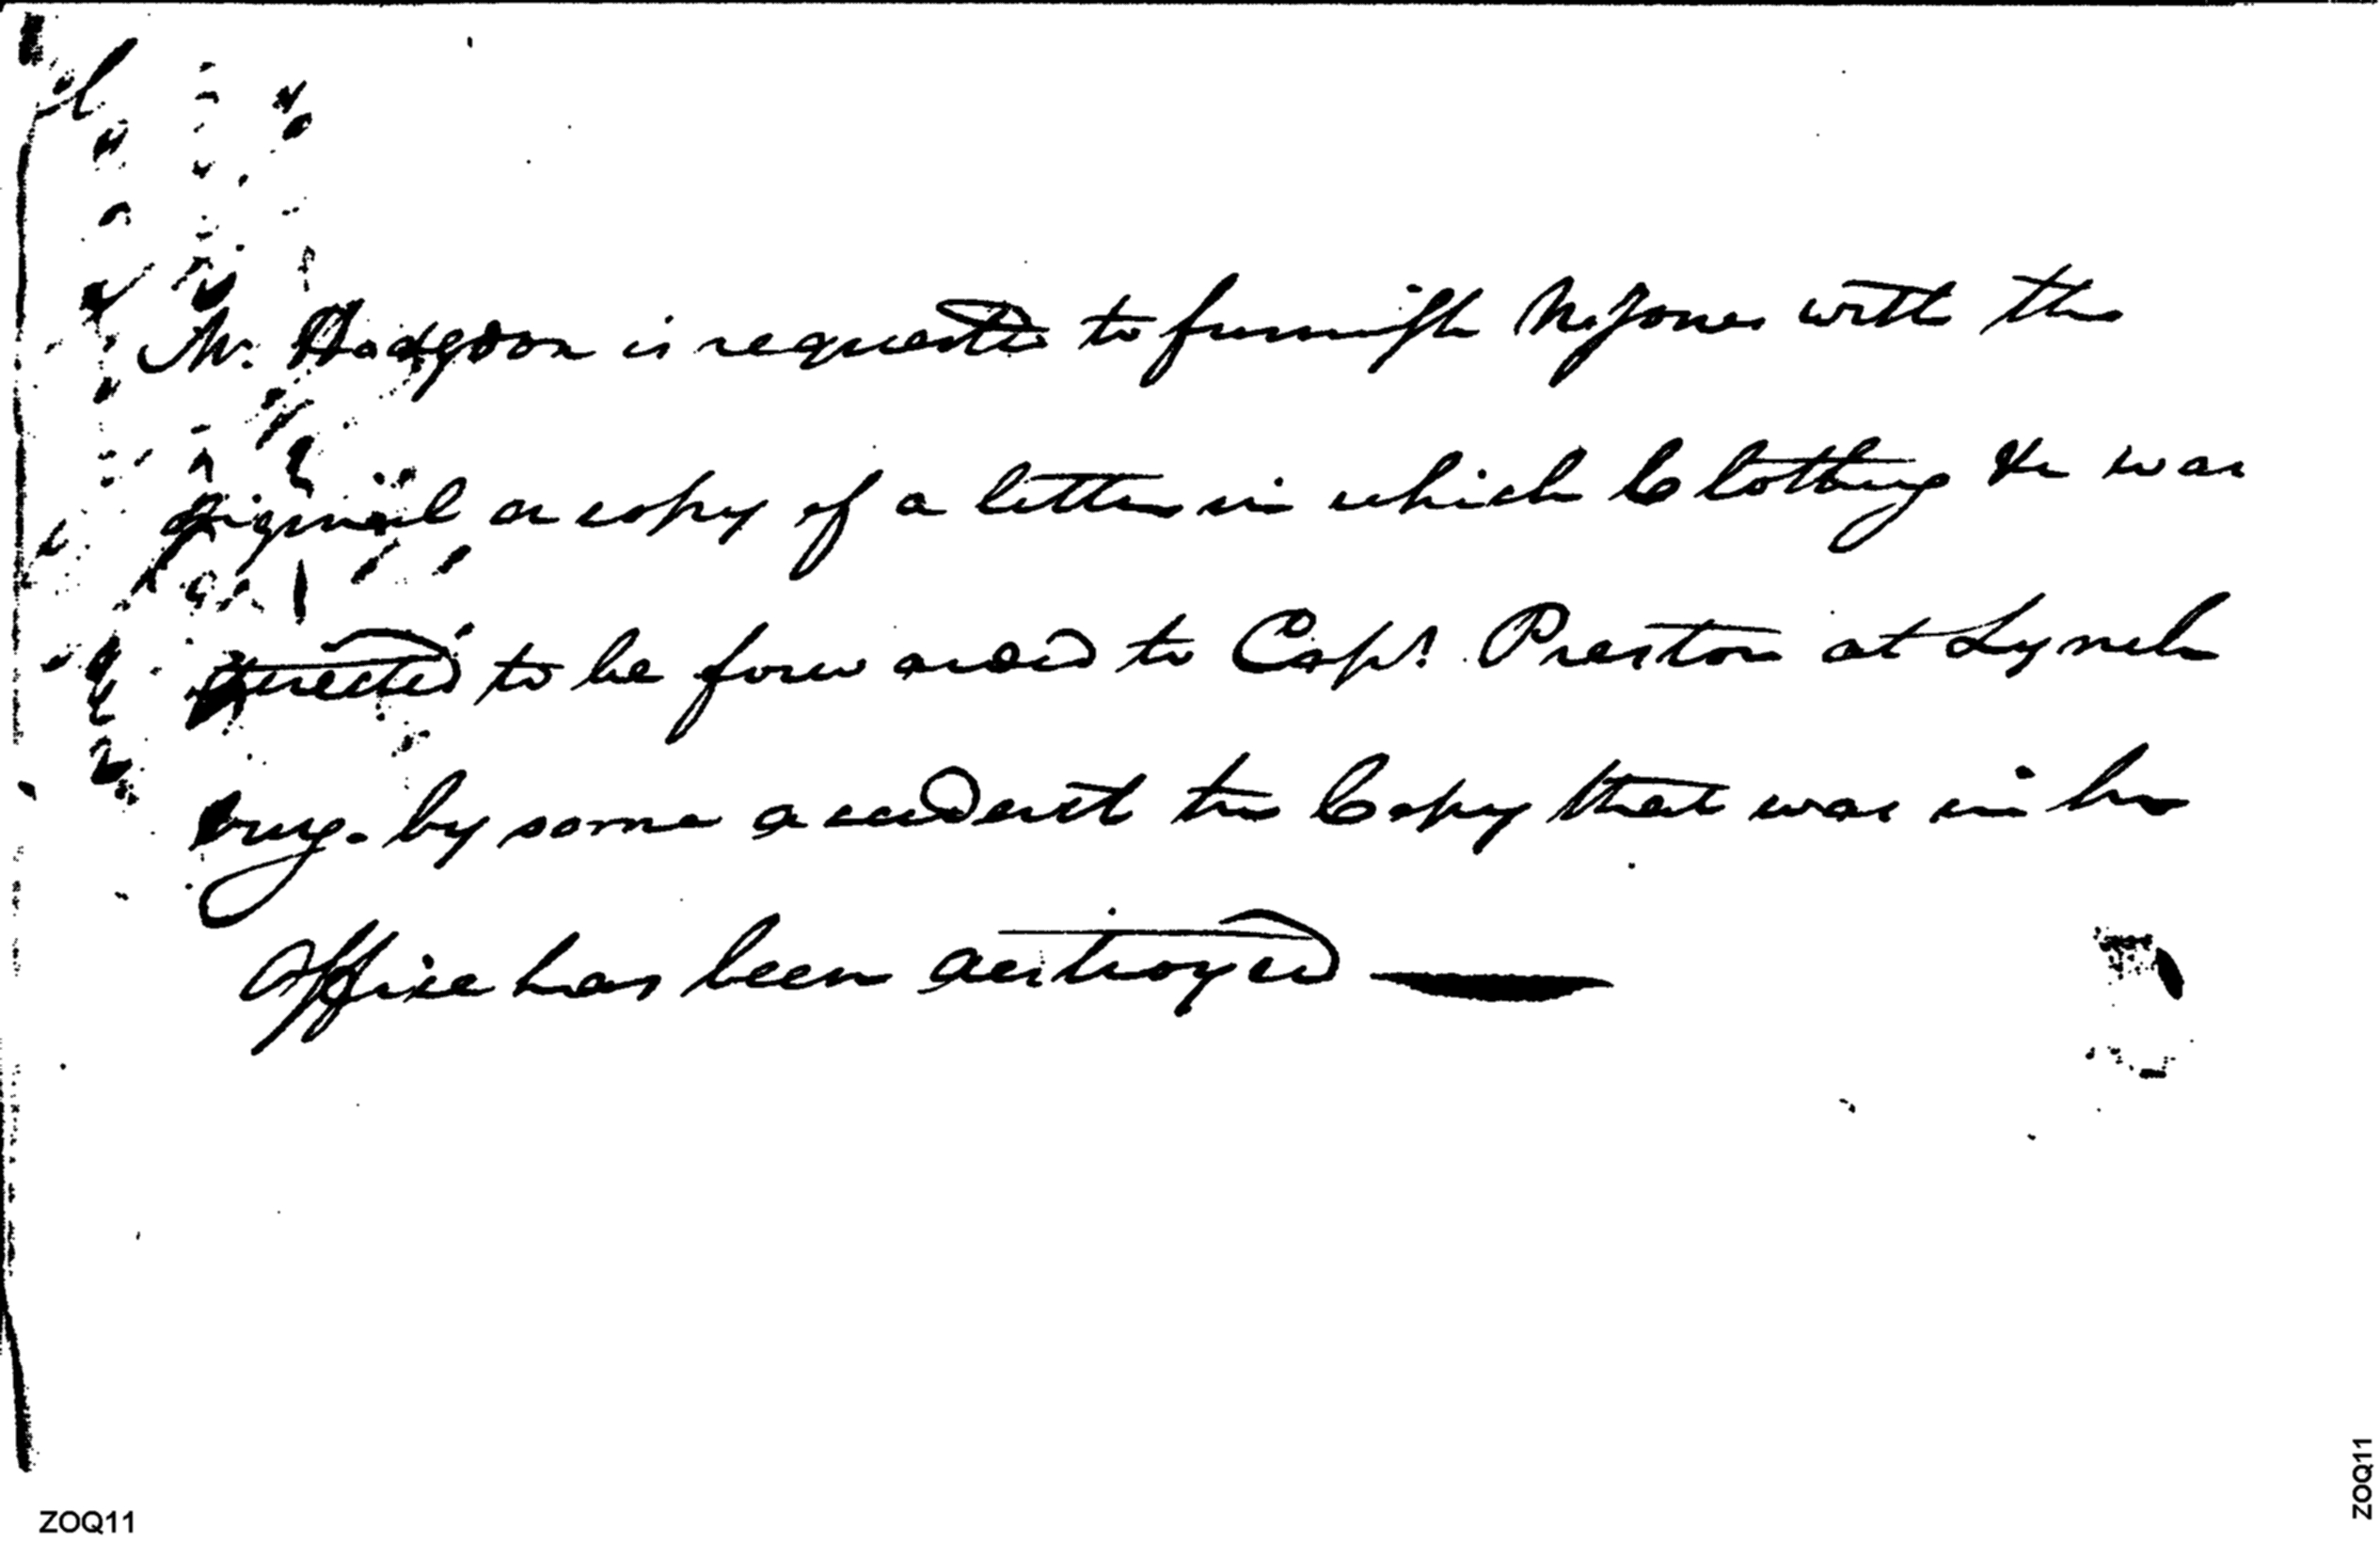 Mr. Hodgdon is requested to furnish Mr Jones with the
original or copy of a letter in which Clothing &c was
directed to be forwarded to Capt. Preston at Lynch
burg. by some accident the Copy that was in his
Office has been destroyed —
ZOQ11
ZOQ11